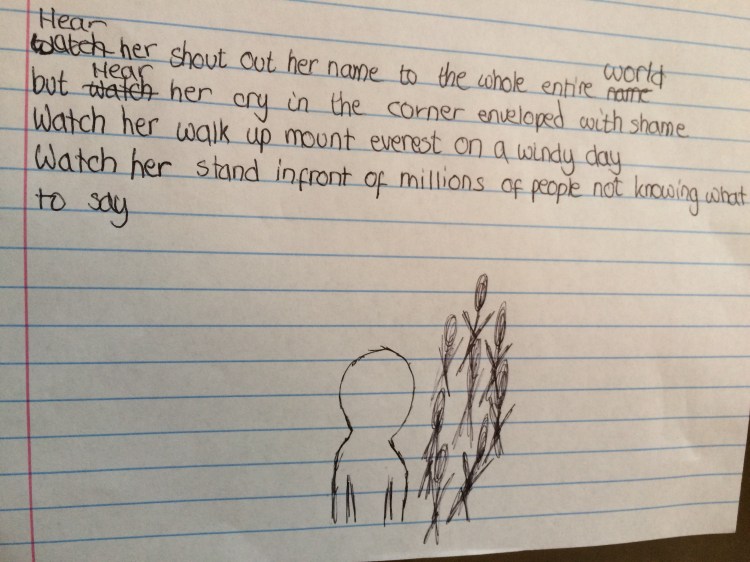 Hear
watch her shout out her name to the whole entire world name
but Hear watch her cry in the corner enveloped with shame
Watch her walk up mount everest on a windy day
Watch her stand infront of millions of people not knowing what
to say